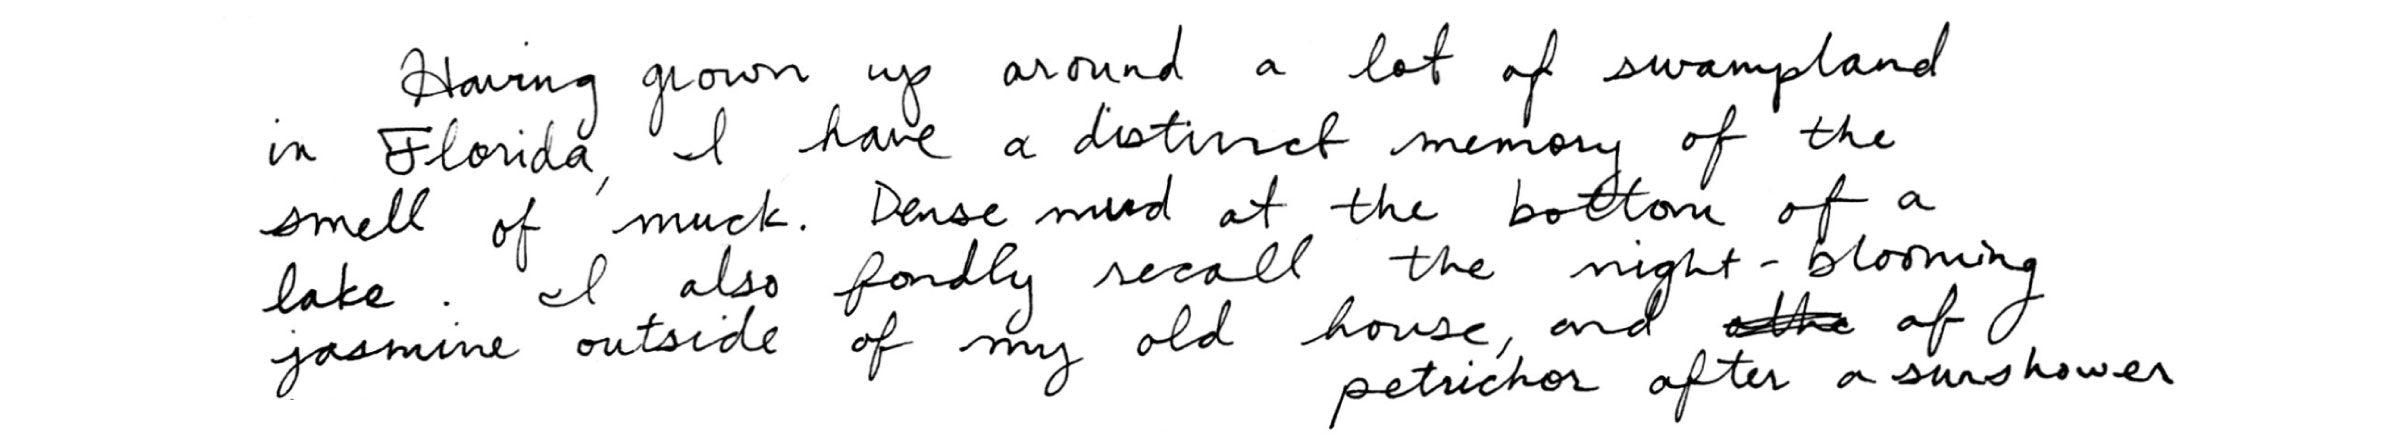 Having grown up around a lot of swampland
in Florida, I have a distinct memory of the
smell of muck. Dense mud at the bottom of a
lake. I also fondly recall the night-blooming
jasmine outside of my old house, and of
petrichor after a sunshower